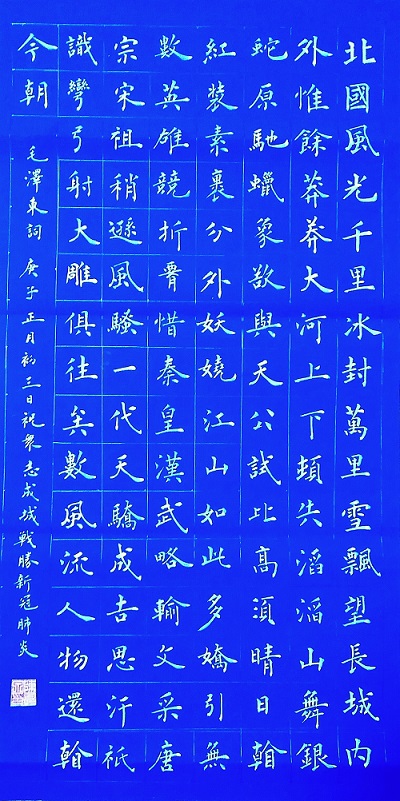 北國風光千里冰封萬里雪飄望長城内
外惟餘莽莽大河上下頓失滔滔山舞銀
蛇原馳蠟象欲與天公試比高須晴日看
紅裝素裹分外妖嬈江山如此多嬌引無
數英雄競折腰惜秦皇漢武略輸文采唐
宗宋祖稍遜風騷一代天驕成吉思汗祇
識彎弓射大雕俱往矣數風流人物還看
今朝
毛澤東詞 庚子正月初三日祝衆志成城戰勝新冠肺炎